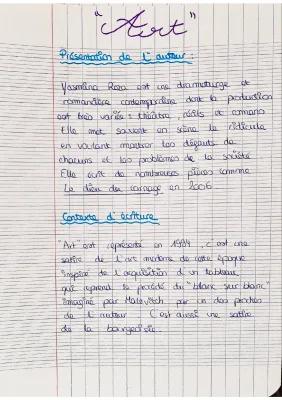 "Art"
Présentation de l'auteur :
Yasmina Reza est une dramaturge et
romancière contemporaine dont la production
est très variée : théâtre, récits et romans
Elle met souvent en scène le ridicule
en voulant montrer les défauts de
chacuns et les problèmes de la société.
Elle écrit de nombreuses pièces comme
Le dieu du carnage en 2006
Contexte d'écriture
"Art" est représenté en 1994, c'est une
satire de l'art moderne de cette époque
inspiré de l'acquisition d'un tableau
qui reprend le procédé du "blanc sur blanc"
imaginé par Malevitch par un des proches
de l'auteur. C'est aussi une satire
de la bourgeoisie.